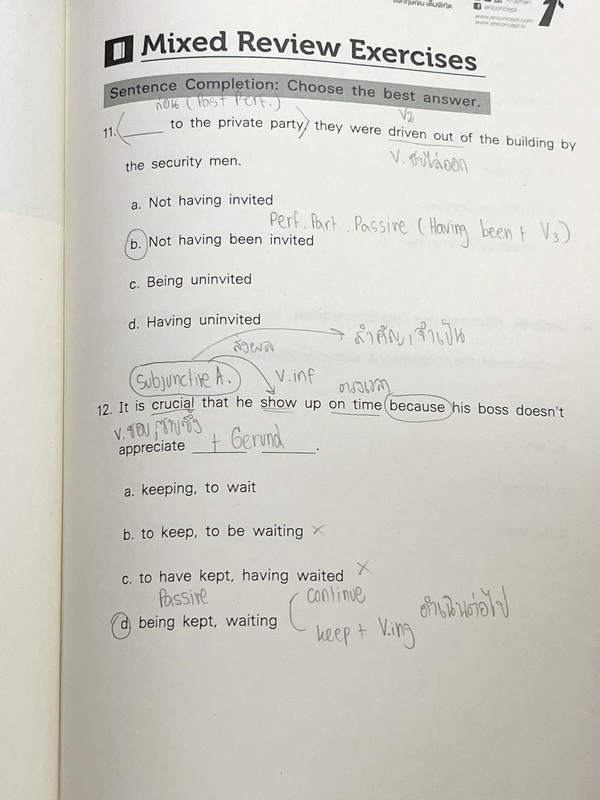 enconcept
www.enconcept.com
Mixed Review Exercises
Sentence Completion: Choose the best answer.
ก่อน (Past Perf.)
V2
11. ______ to the private party, they were driven out of the building by
V. ขับไล่ออก
the security men.
a. Not having invited
Perf. Part. Passive (Having been + V3)
b. Not having been invited
c. Being uninvited
d. Having uninvited
ส่งผล
สำคัญ, จำเป็น
Subjunctive A.
V.inf
ตรงเวลา
12. It is crucial that he show up on time because his boss doesn't
V. ชอบ, ซาบซึ้ง
appreciate ______ + Gerund ______.
a. keeping, to wait
b. to keep, to be waiting ×
c. to have kept, having waited ×
Passive
continue
d. being kept, waiting
keep + V.ing
ดำเนินต่อไป